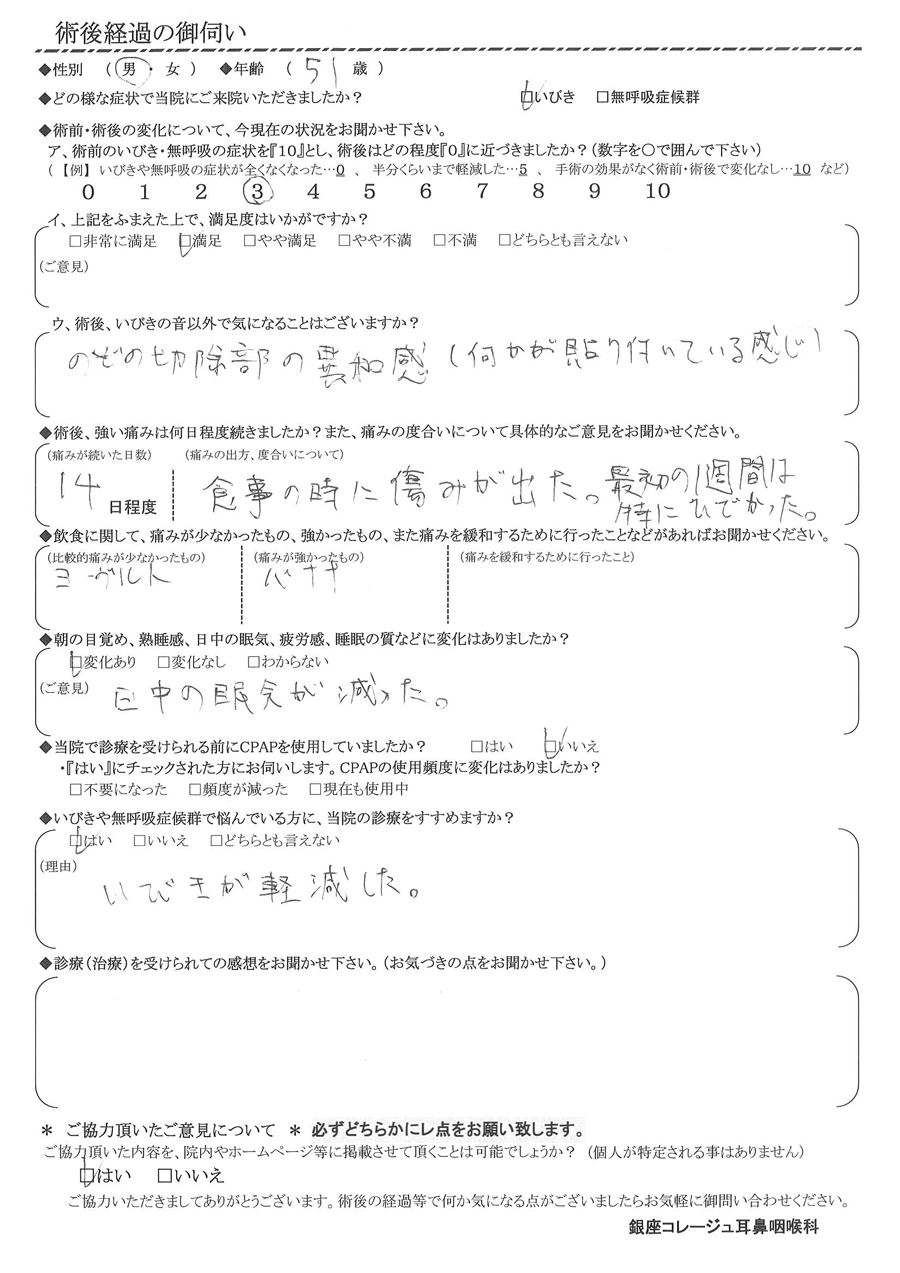 術後経過の御伺い
◆性別 (男・女) ◆年齢 (51歳)
◆どの様な症状で当院にご来院いただきましたか? □いびき □無呼吸症候群
◆術前・術後の変化について、今現在の状況をお聞かせ下さい。
ア、術前のいびき・無呼吸の症状を『10』とし、術後はどの程度『0』に近づきましたか?(数字を〇で囲んで下さい)
(【例】いびきや無呼吸の症状が全くなくなった…0 、 半分くらいまで軽減した…5 、 手術の効果がなく術前・術後で変化なし…10 など)
0 1 2 3 4 5 6 7 8 9 10
イ、上記をふまえた上で、満足度はいかがですか?
□非常に満足 □満足 □やや満足 □やや不満 □不満 □どちらとも言えない
(ご意見)
ウ、術後、いびきの音以外で気になることはございますか?
のどの切除部の異和感(何かが貼り付いている感じ)
◆術後、強い痛みは何日程度続きましたか?また、痛みの度合いについて具体的なご意見をお聞かせください。
(痛みが続いた日数) (痛みの出方、度合いについて)
14日程度 食事の時に傷みが出た。最初の1週間は
特にひどかった。
◆飲食に関して、痛みが少なかったもの、強かったもの、また痛みを緩和するために行ったことなどがあればお聞かせください。
(比較的痛みが少なかったもの) (痛みが強かったもの) (痛みを緩和するために行ったこと)
ヨーグルト バナナ
◆朝の目覚め、熟睡感、日中の眠気、疲労感、睡眠の質などに変化はありましたか?
□変化あり □変化なし □わからない
(ご意見) 日中の眠気が減った。
◆当院で診療を受けられる前にCPAPを使用していましたか? □はい □いいえ
・『はい』にチェックされた方にお伺いします。CPAPの使用頻度に変化はありましたか?
□不要になった □頻度が減った □現在も使用中
◆いびきや無呼吸症候群で悩んでいる方に、当院の診療をすすめますか?
□はい □いいえ □どちらとも言えない
(理由)
いびきが軽減した。
◆診療(治療)を受けられての感想をお聞かせ下さい。(お気づきの点をお聞かせ下さい。)
* ご協力頂いたご意見について * 必ずどちらかにレ点をお願い致します。
ご協力頂いた内容を、院内やホームページ等に掲載させて頂くことは可能でしょうか? (個人が特定される事はありません)
□はい □いいえ
ご協力いただきましてありがとうございます。術後の経過等で何か気になる点がございましたらお気軽に御問い合わせください。
銀座コレージュ耳鼻咽喉科